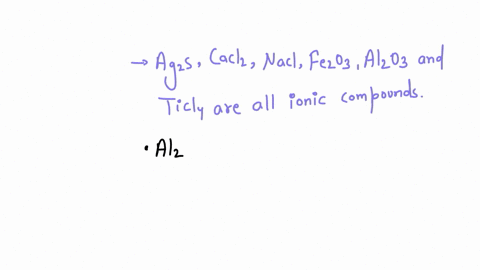 → Ag₂S, CaCl₂, NaCl, Fe₂O₃, Al₂O₃ and
TiCl₄ are all ionic compounds.
• Al₂